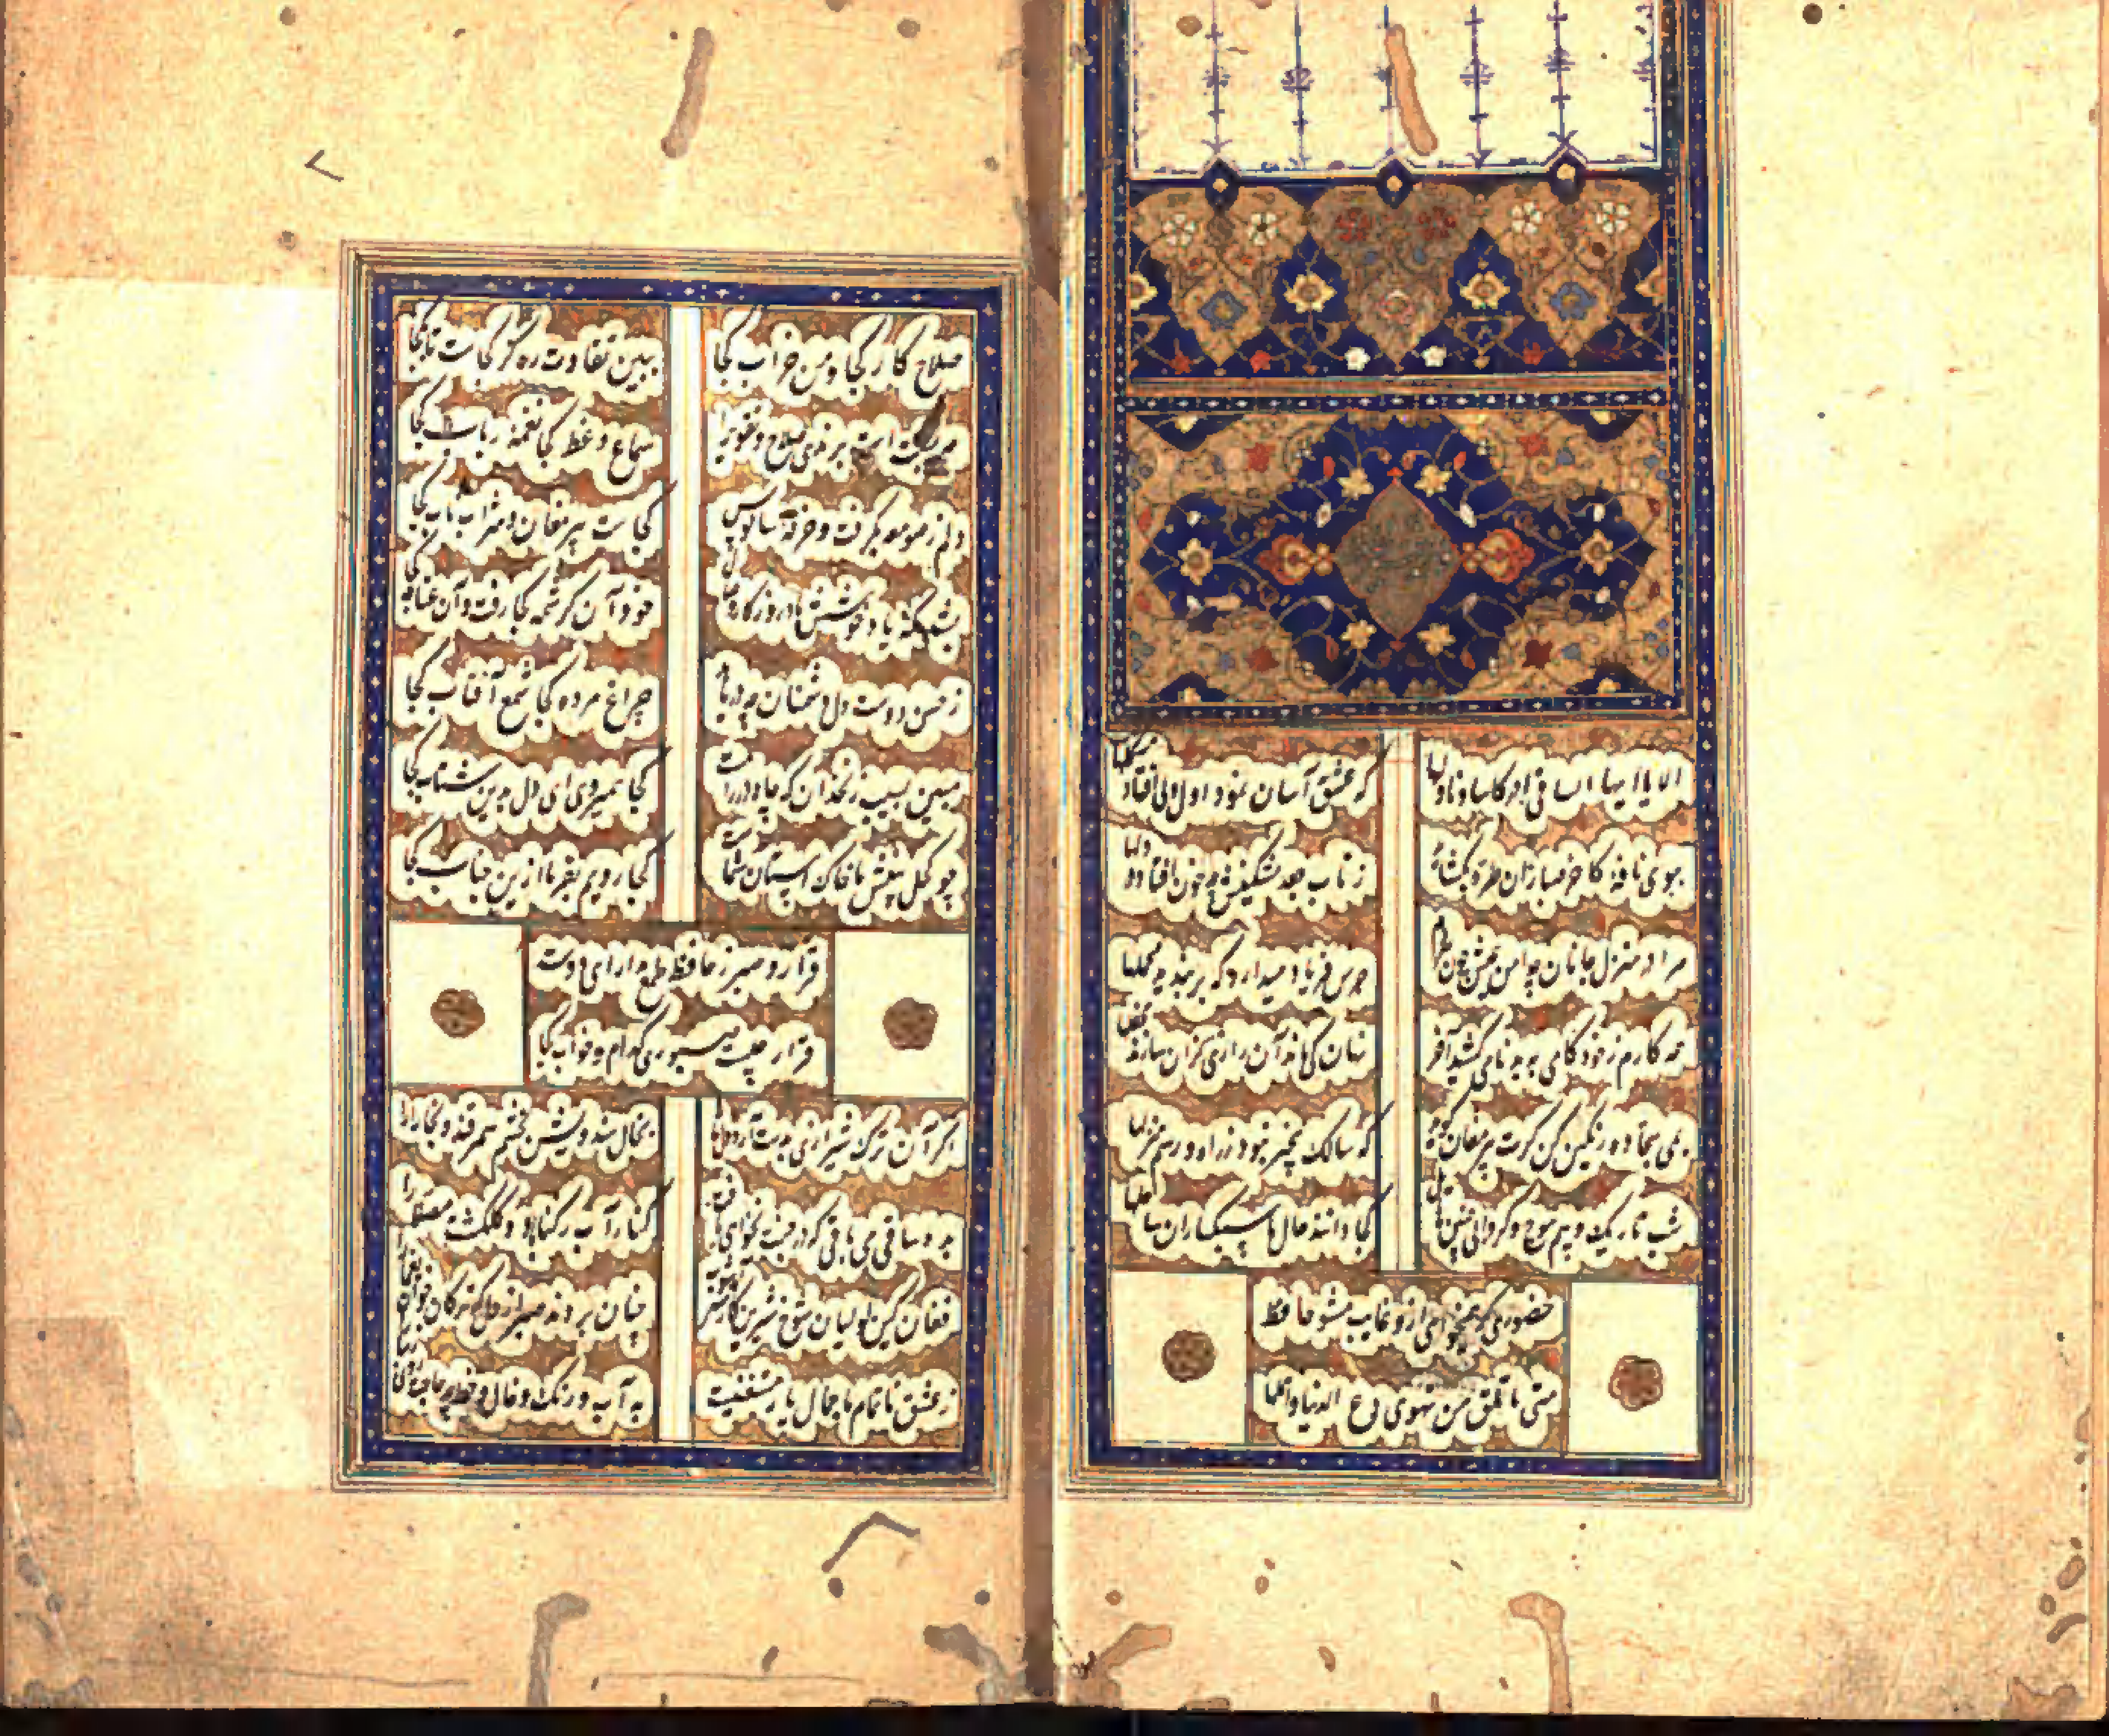 الا یا ایها الساقی ادر کاسا و ناولها
که عشق آسان نمود اول ولی افتاد مشکلها
ببوی نافه کاخر صبا زان طره بگشاید
ز تاب جعد مشکینش چه خون افتاد در دلها
مرا در منزل جانان چه امن عیش چون هردم
جرس فریاد میدارد که بربندید محملها
همه کارم ز خودکامی به بدنامی کشید آخر
نهان کی ماند آن رازی کزان سازند محفلها
بمی سجاده رنگین کن گرت پیر مغان گوید
که سالک بیخبر نبود ز راه و رسم منزلها
شب تاریک و بیم موج و گردابی چنین هایل
کجا دانند حال ما سبکباران ساحلها
حضوری گر همیخواهی ازو غایب مشو حافظ
متی ما تلق من تهوی دع الدنیا و اهملها
صلاح کار کجا و من خراب کجا
ببین تفاوت ره کز کجاست تا بکجا
چه نسبت است برندی صلاح و تقوی را
سماع وعظ کجا نغمه رباب کجا
دلم ز صومعه بگرفت و خرقه سالوس
کجاست پیر مغان و شراب ناب کجا
بشد که یاد خوشش باد روزگار وصال
خود آن کرشمه کجا رفت و آن عتاب کجا
ز حسن دوست دل دشمنان چه دریابد
چراغ مرده کجا شمع آفتاب کجا
مبین بسیب زنخدان که چاه در راهست
کجا همیروی ای دل بدین شتاب کجا
چو کحل بینش ما خاک آستان شماست
کجا رویم بفرما ازین جناب کجا
قرار و صبر ز حافظ طمع مدار ای دوست
قرار چیست صبوری کدام و خواب کجا
اگر آن ترک شیرازی بدست آرد دل ما را
بخال هندویش بخشم سمرقند و بخارا را
بده ساقی می باقی که در جنت نخواهی یافت
کنار آب رکناباد و گلگشت مصلا را
فغان کین لولیان شوخ شیرین کار شهرآشوب
چنان بردند صبر از دل که ترکان خوان یغما را
ز عشق ناتمام ما جمال یار مستغنیست
به آب و رنگ و خال و خط چه حاجت روی زیبا را